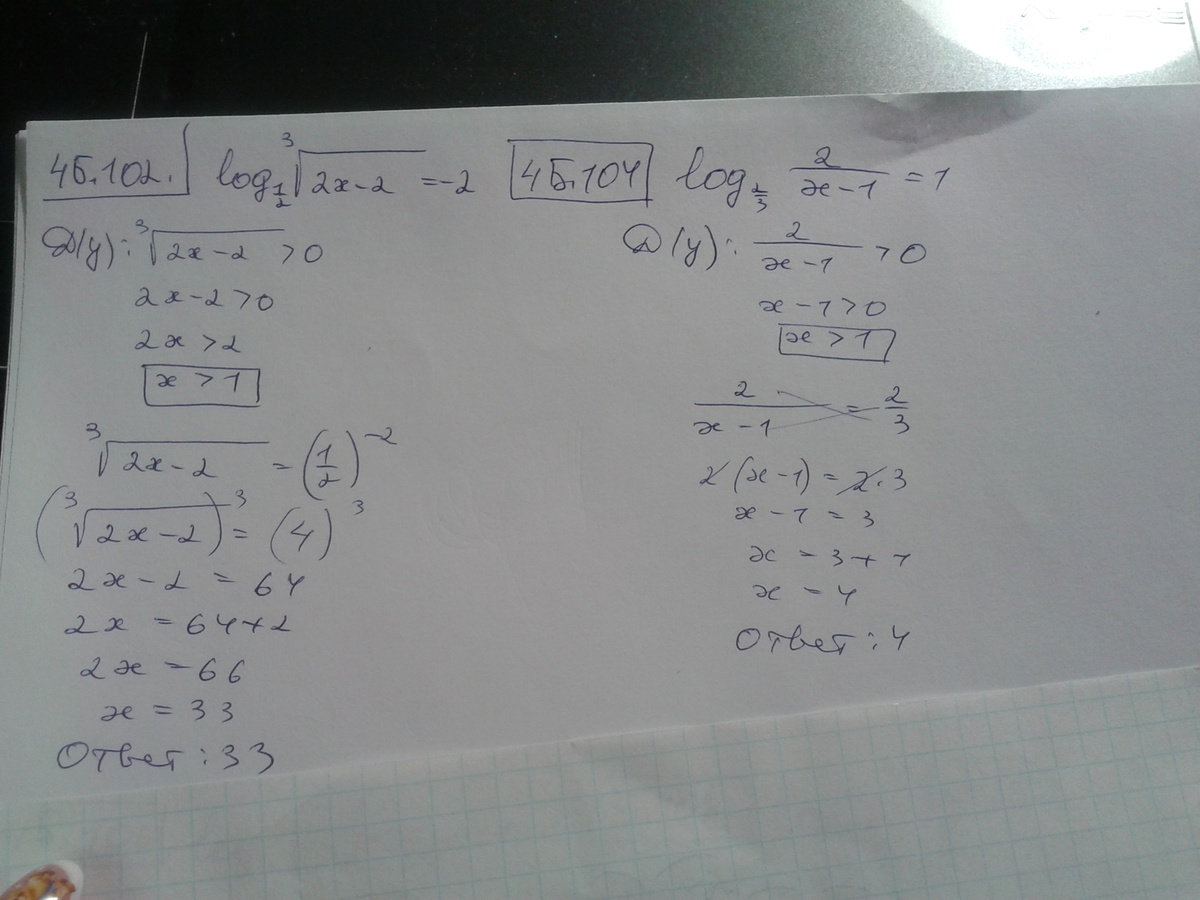 4Б.102. log_{1/2} ∛(2x-2) = -2
D(y): ∛(2x-2) > 0
2x-2>0
2x>2
x > 1
∛(2x-2) = (1/2)^{-2}
(∛(2x-2))^3 = (4)^3
2x-2 = 64
2x = 64+2
2x = 66
x = 33
Ответ: 33
4Б.104 log_{2/3} 2/(x-1) = 1
D(y): 2/(x-1) > 0
x-1>0
x > 1
2/(x-1) = 2/3
2(x-1) = 2·3
x-1 = 3
x = 3+1
x = 4
Ответ: 4